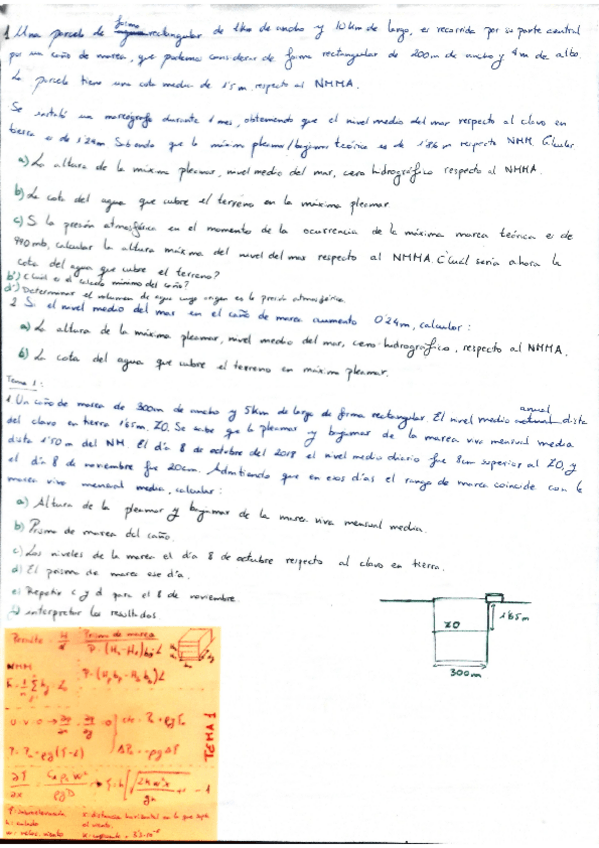 1. Una parcela de forma rectangular de 1km de ancho y 10km de largo, es recorrida por su parte central
por un caño de marea, que podemos considerar de forma rectangular de 200m de ancho y 4m de alto.
La parcela tiene una cota media de 1'5m respecto al NMMA.
Se instaló un mareógrafo durante 1 mes, obteniendo que el nivel medio del mar respecto al clavo en
tierra es de 1'24m. Sabiendo que la máxima pleamar/bajamar teórica es de 1'86m respecto NMM. Calcular
a) La altura de la máxima pleamar, nivel medio del mar, cero hidrográfico respecto al NMMA.
b) La cota del agua que cubre el terreno en la máxima pleamar.
c) Si la presión atmosférica en el momento de la ocurrencia de la máxima marea teórica es de
990mb, calcular la altura máxima del nivel del mar respecto al NMMA. ¿Cuál sería ahora la
cota del agua que cubre el terreno?
b') ¿Cuál es el calado mínimo del caño?
d') Determinar el volumen de agua cuyo origen es la presión atmosférica.
2. Si el nivel medio del mar en el caño de marea aumenta 0'24m, calcular:
a) La altura de la máxima pleamar, nivel medio del mar, cero hidrográfico, respecto al NMMA.
b) La cota del agua que cubre el terreno en máxima pleamar.
Tema 1:
1. Un caño de marea de 300m de ancho y 5km de largo de forma rectangular. El nivel medio anual dista
del clavo en tierra 1'65m. ZO. Se sabe que la pleamar y bajamar de la marea viva mensual media
dista 1'50m del NM. El día 8 de octubre del 2018 el nivel medio diario fue 8cm superior al ZO, y
el día 8 de noviembre fue 20cm. Admitiendo que en esos días el rango de marea coincide con la
marea viva mensual media, calcular:
a) Altura de la pleamar y bajamar de la marea viva mensual media.
b) Prisma de marea del caño.
c) Los niveles de la marea el día 8 de octubre respecto al clavo en tierra.
d) El prisma de marea ese día.
e) Repetir c y d para el 8 de noviembre.
f) interpretar los resultados.
ZO
1'65m
300m
Prisma de marea
NMM
TEMA 1